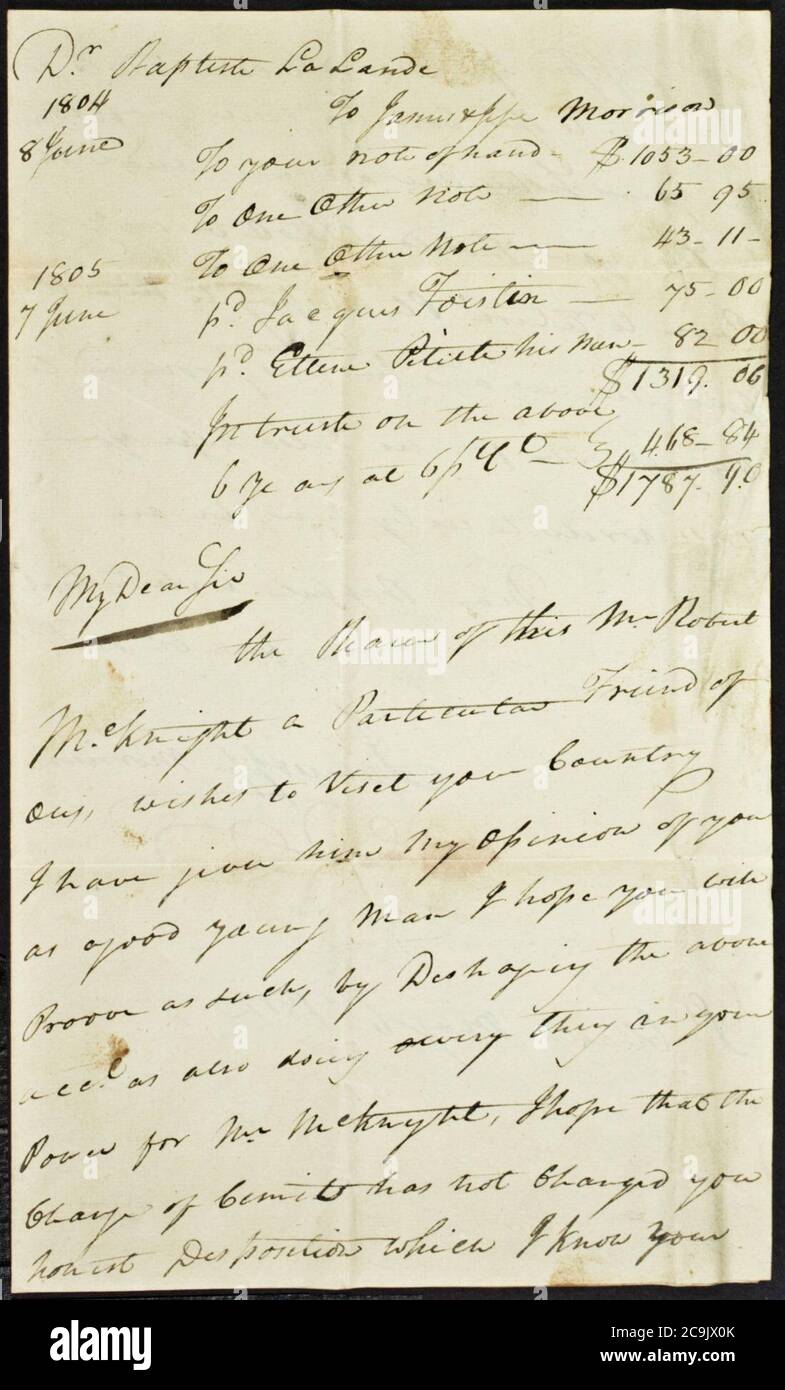 Dr Baptiste La Lande
1804 To James & Jesse Morrison
8 June To your note of hand - $1053-00
To One Other Note — 65 95
To One Other Note — 43-11-
1805
7 June pd Jacques — 75-00
pd his Man - 82 00
$1319.06
Intrust on the above
6 Years at 6 p Ct — 468-84
$1787.90
My Dear Sir
the Bearer of this Mr Robert
McKnight a Particular Friend of
Ours, wishes to Viset your Country
I have given him My Opinion of you
as a good young Man I hope you will
Proove as such, by the above
acct as also doing every thing in your
Power for Mr McKnight, I hope that the
Change of has not Changed your
honest Desposition which I know your
alamy
Image ID: 2C9JX0K
www.alamy.com